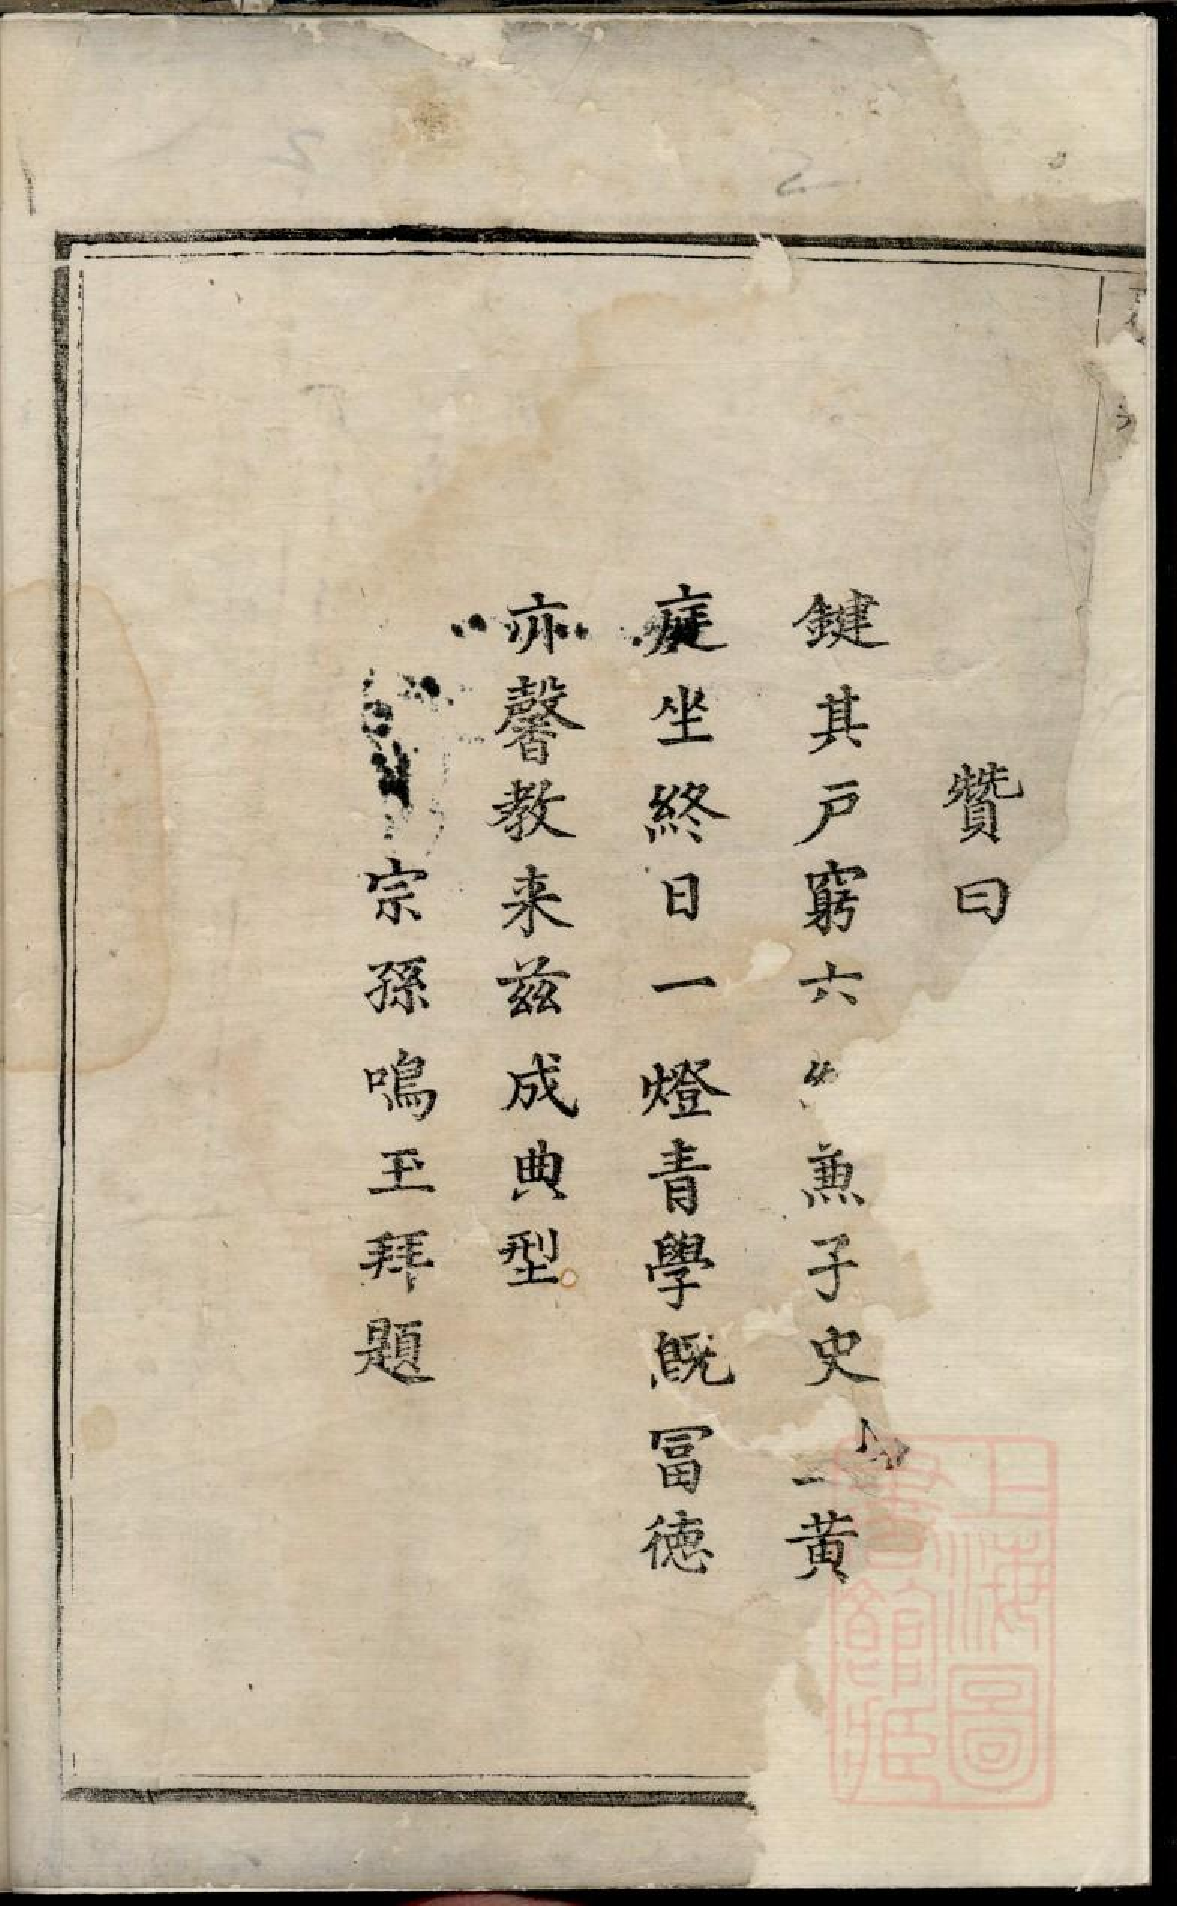 贊曰
鍵其戶窮六兼子史一黃
庭坐終日一燈青學既冨徳
亦馨教来茲成典型
宗孫鳴玉拜題
上海圖書館藏